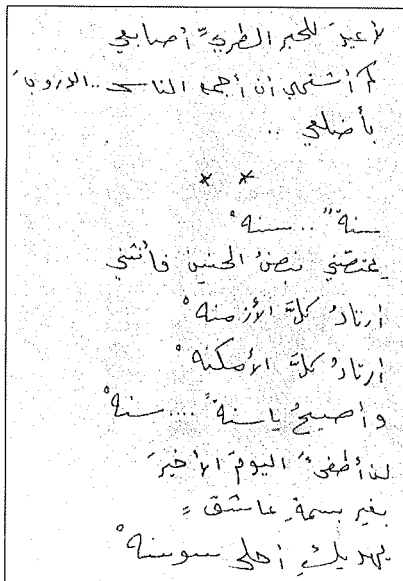 لأعيدَ للحبر الطريِّ أصابعي
كم أشتهي أن أجمع الناسَ .. الدروبَ
بأضلعي ..
* *
سنةً .. سنهْ
يمتصّني نبضُ الحنين فأنثني
أرتادُ كلَّ الأزمنهْ
أرتادُ كلَّ الأمكنهْ
وأصيحُ يا سنةً .... سنهْ
لن أطفئَ اليومَ الأخيرَ
بغير بسمةِ عاشقٍ
يهديكِ أحلى سوسنهْ